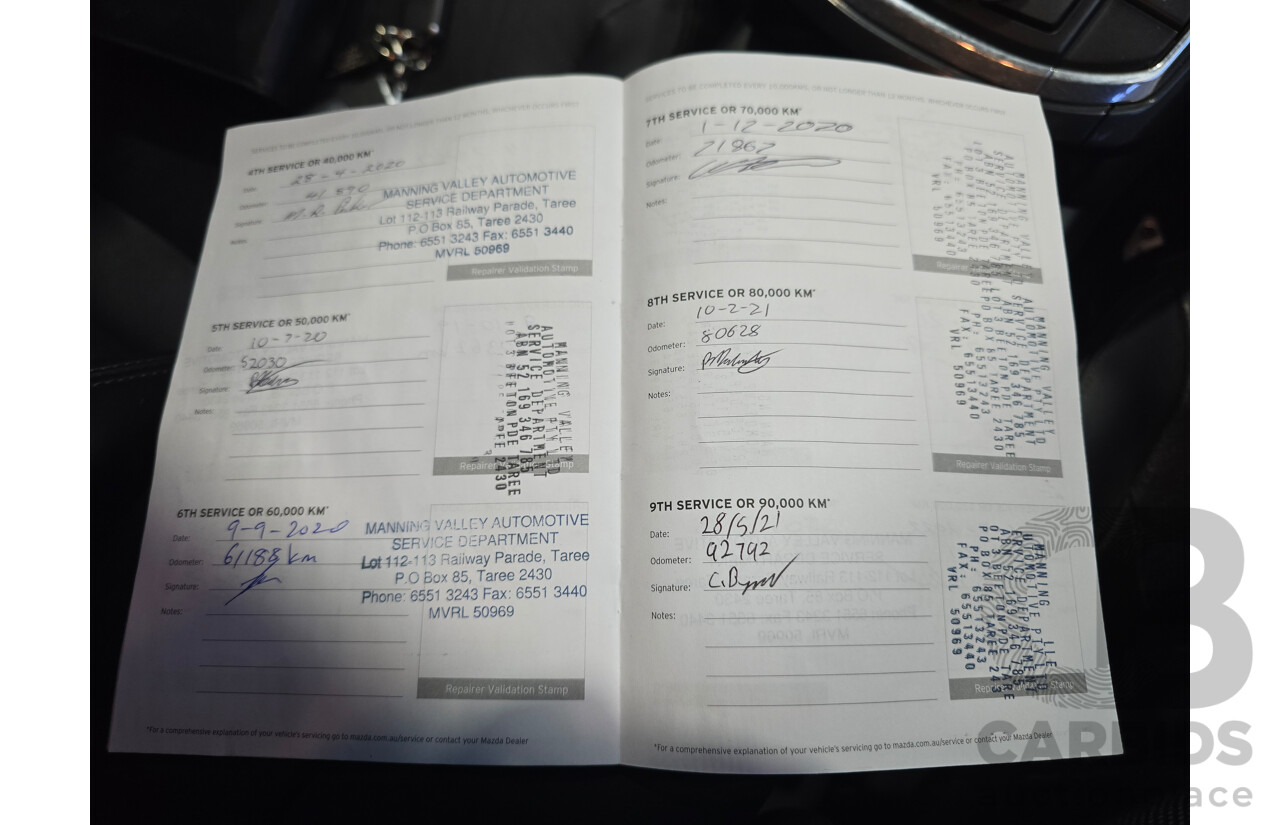 SERVICES TO BE COMPLETED EVERY 10,000KMS, OR NOT LONGER THAN 12 MONTHS, WHICHEVER OCCURS FIRST
4TH SERVICE OR 40,000 KM*
Date: 28-4-2020
Odometer: 41 890
Signature:
Notes:
MANNING VALLEY AUTOMOTIVE
SERVICE DEPARTMENT
Lot 112-113 Railway Parade, Taree
P.O Box 85, Taree 2430
Phone: 6551 3243 Fax: 6551 3440
MVRL 50969
Repairer Validation Stamp
5TH SERVICE OR 50,000 KM*
Date: 10-7-20
Odometer: 52030
Signature:
Notes:
MANNING VALLEY
AUTOMOTIVE PTY LTD
SERVICE DEPARTMENT
ABN 52 169 346 785
LOT 3 BEETON PDE TAREE
2430
Repairer Validation Stamp
6TH SERVICE OR 60,000 KM*
Date: 9-9-2020
Odometer: 61188 km
Signature:
Notes:
MANNING VALLEY AUTOMOTIVE
SERVICE DEPARTMENT
Lot 112-113 Railway Parade, Taree
P.O Box 85, Taree 2430
Phone: 6551 3243 Fax: 6551 3440
MVRL 50969
Repairer Validation Stamp
*For a comprehensive explanation of your vehicle's servicing go to mazda.com.au/service or contact your Mazda Dealer
SERVICES TO BE COMPLETED EVERY 10,000KMS, OR NOT LONGER THAN 12 MONTHS, WHICHEVER OCCURS FIRST
7TH SERVICE OR 70,000 KM*
Date: 1-12-2020
Odometer: 71862
Signature:
Notes:
VRL 50969
8TH SERVICE OR 80,000 KM*
Date: 10-2-21
Odometer: 80628
Signature:
Notes:
MANNING VALLEY
AUTOMOTIVE PTY LTD
SERVICE DEPARTMENT
ABN 52 169 346 785
LOT 3 BEETON PDE TAREE
PO BOX 85 TAREE 2430
PH: 65513243
FAX: 65513440
VRL 50969
Repairer Validation Stamp
9TH SERVICE OR 90,000 KM*
Date: 28/5/21
Odometer: 92792
Signature:
Notes:
MANNING
PH: 65513243
FAX: 65513440
VRL 50969
*For a comprehensive explanation of your vehicle's servicing go to mazda.com.au/service or contact your Mazda Dealer